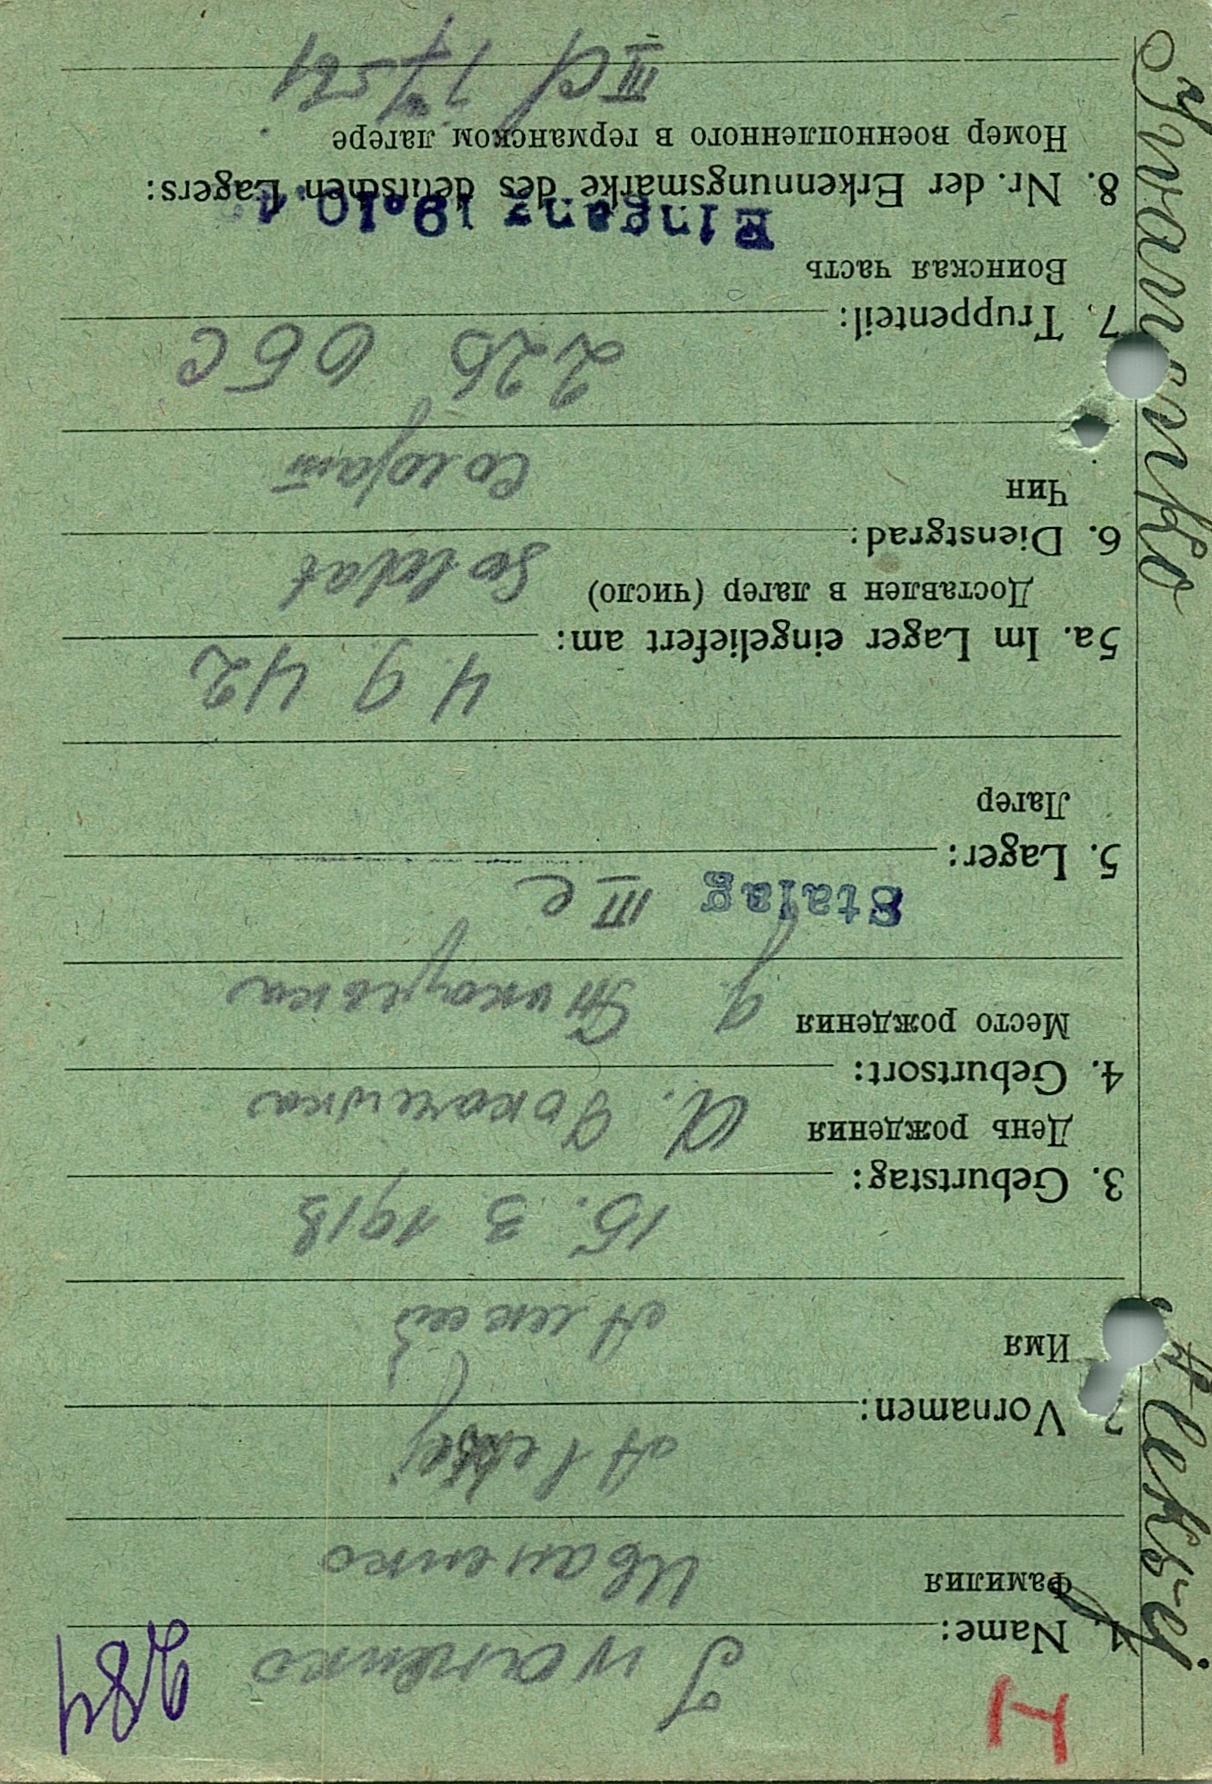 И
284
Iwanenko
1. Name:
Фамилия
Иваненко
Aleksej
2. Vornamen:
Имя
Алексей
15. 3 1918
3. Geburtstag:
День рождения
4. Geburtsort:
Место рождения
Stalag III C
5. Lager:
Лагер
4 9 42
5a. Im Lager eingeliefert am:
Доставлен в лагер (число)
Soldat
6. Dienstgrad:
Чин
Солдат
225 ОБС
7. Truppenteil:
Воинская часть
Eingang 19.10.
8. Nr. der Erkennungsmarke des deutschen Lagers:
Номер военнопленного в германском лагере
III C
Aleksej Iwanenko